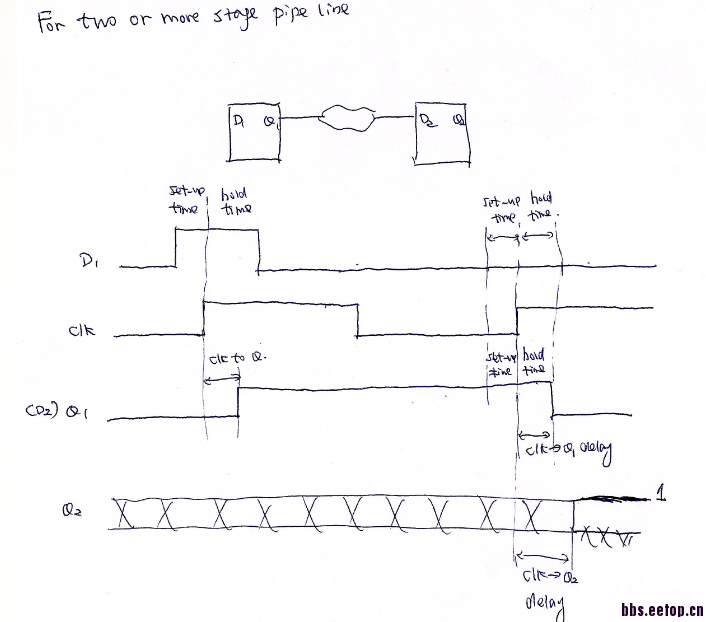 For two or more stage pipe line
D1 Q1 D2 Q2
set-up hold
time time
set-up hold
time, time.
D1
clk
clk to Q.
set-up hold
time time
(D2) Q1
clk→Q1 delay
Q2
1
clk→Q2
delay
bbs.eetop.cn